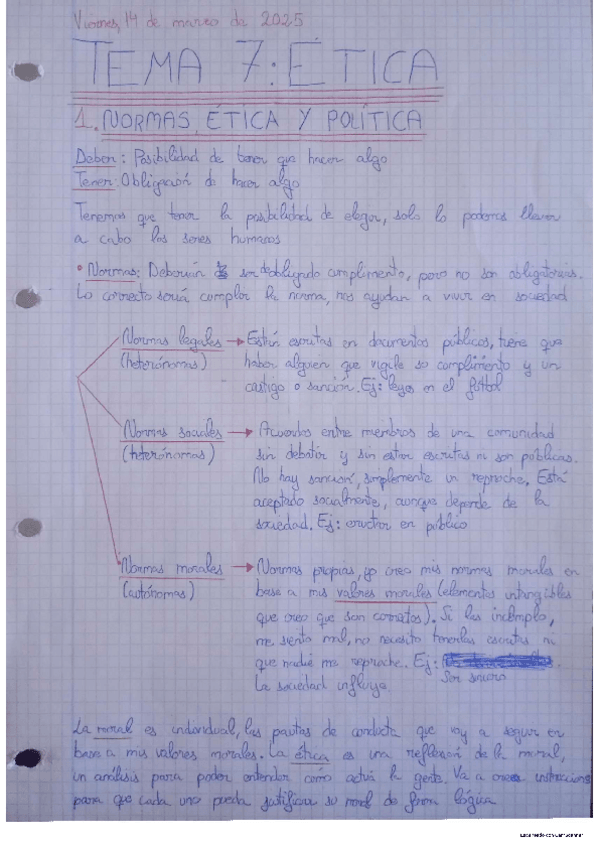 Viernes, 14 de marzo de 2025
TEMA 7: ÉTICA
1. NORMAS, ÉTICA Y POLÍTICA
Deber: Posibilidad de tener que hacer algo
Tener: Obligación de hacer algo
Tenemos que tener la posibilidad de elegir, solo lo podemos llevar
a cabo los seres humanos
• Normas: Deberían ser de obligado cumplimento, pero no son obligatorias.
Lo correcto sería cumplir la norma, nos ayudan a vivir en sociedad
Normas legales → Están escritas en documentos públicos, tiene que
(heterónomas) haber alguien que vigile su cumplimento y un
castigo o sanción. Ej: leyes en el fútbol
Normas sociales → Acuerdos entre miembros de una comunidad
(heterónomas) sin debatir y sin estar escritas ni son públicas.
No hay sanción, simplemente un reproche. Está
aceptado socialmente, aunque depende de la
sociedad. Ej: eructar en público
Normas morales → Normas propias, yo creo mis normas morales en
(autónomas) base a mis valores morales (elementos intangibles
que creo que son correctos). Si las incumplo,
me siento mal, no necesito tenerlas escritas ni
que nadie me reproche. Ej:
Ser sincero
La sociedad influye
La moral es individual, las pautas de conducta que voy a seguir en
base a mis valores morales. La ética es una reflexión de la moral,
un análisis para poder entender como actúa la gente. Va a crear
para que cada uno pueda justificar su moral de forma lógica